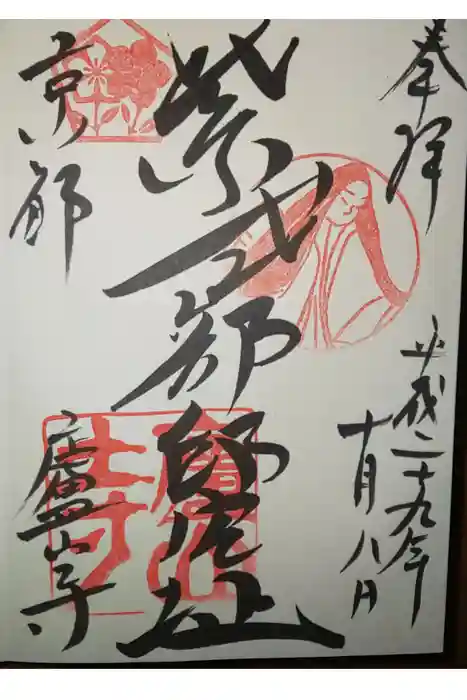 奉拝
平成二十九年
十月八日
紫式部邸宅址
京都
廬山寺
廬山寺